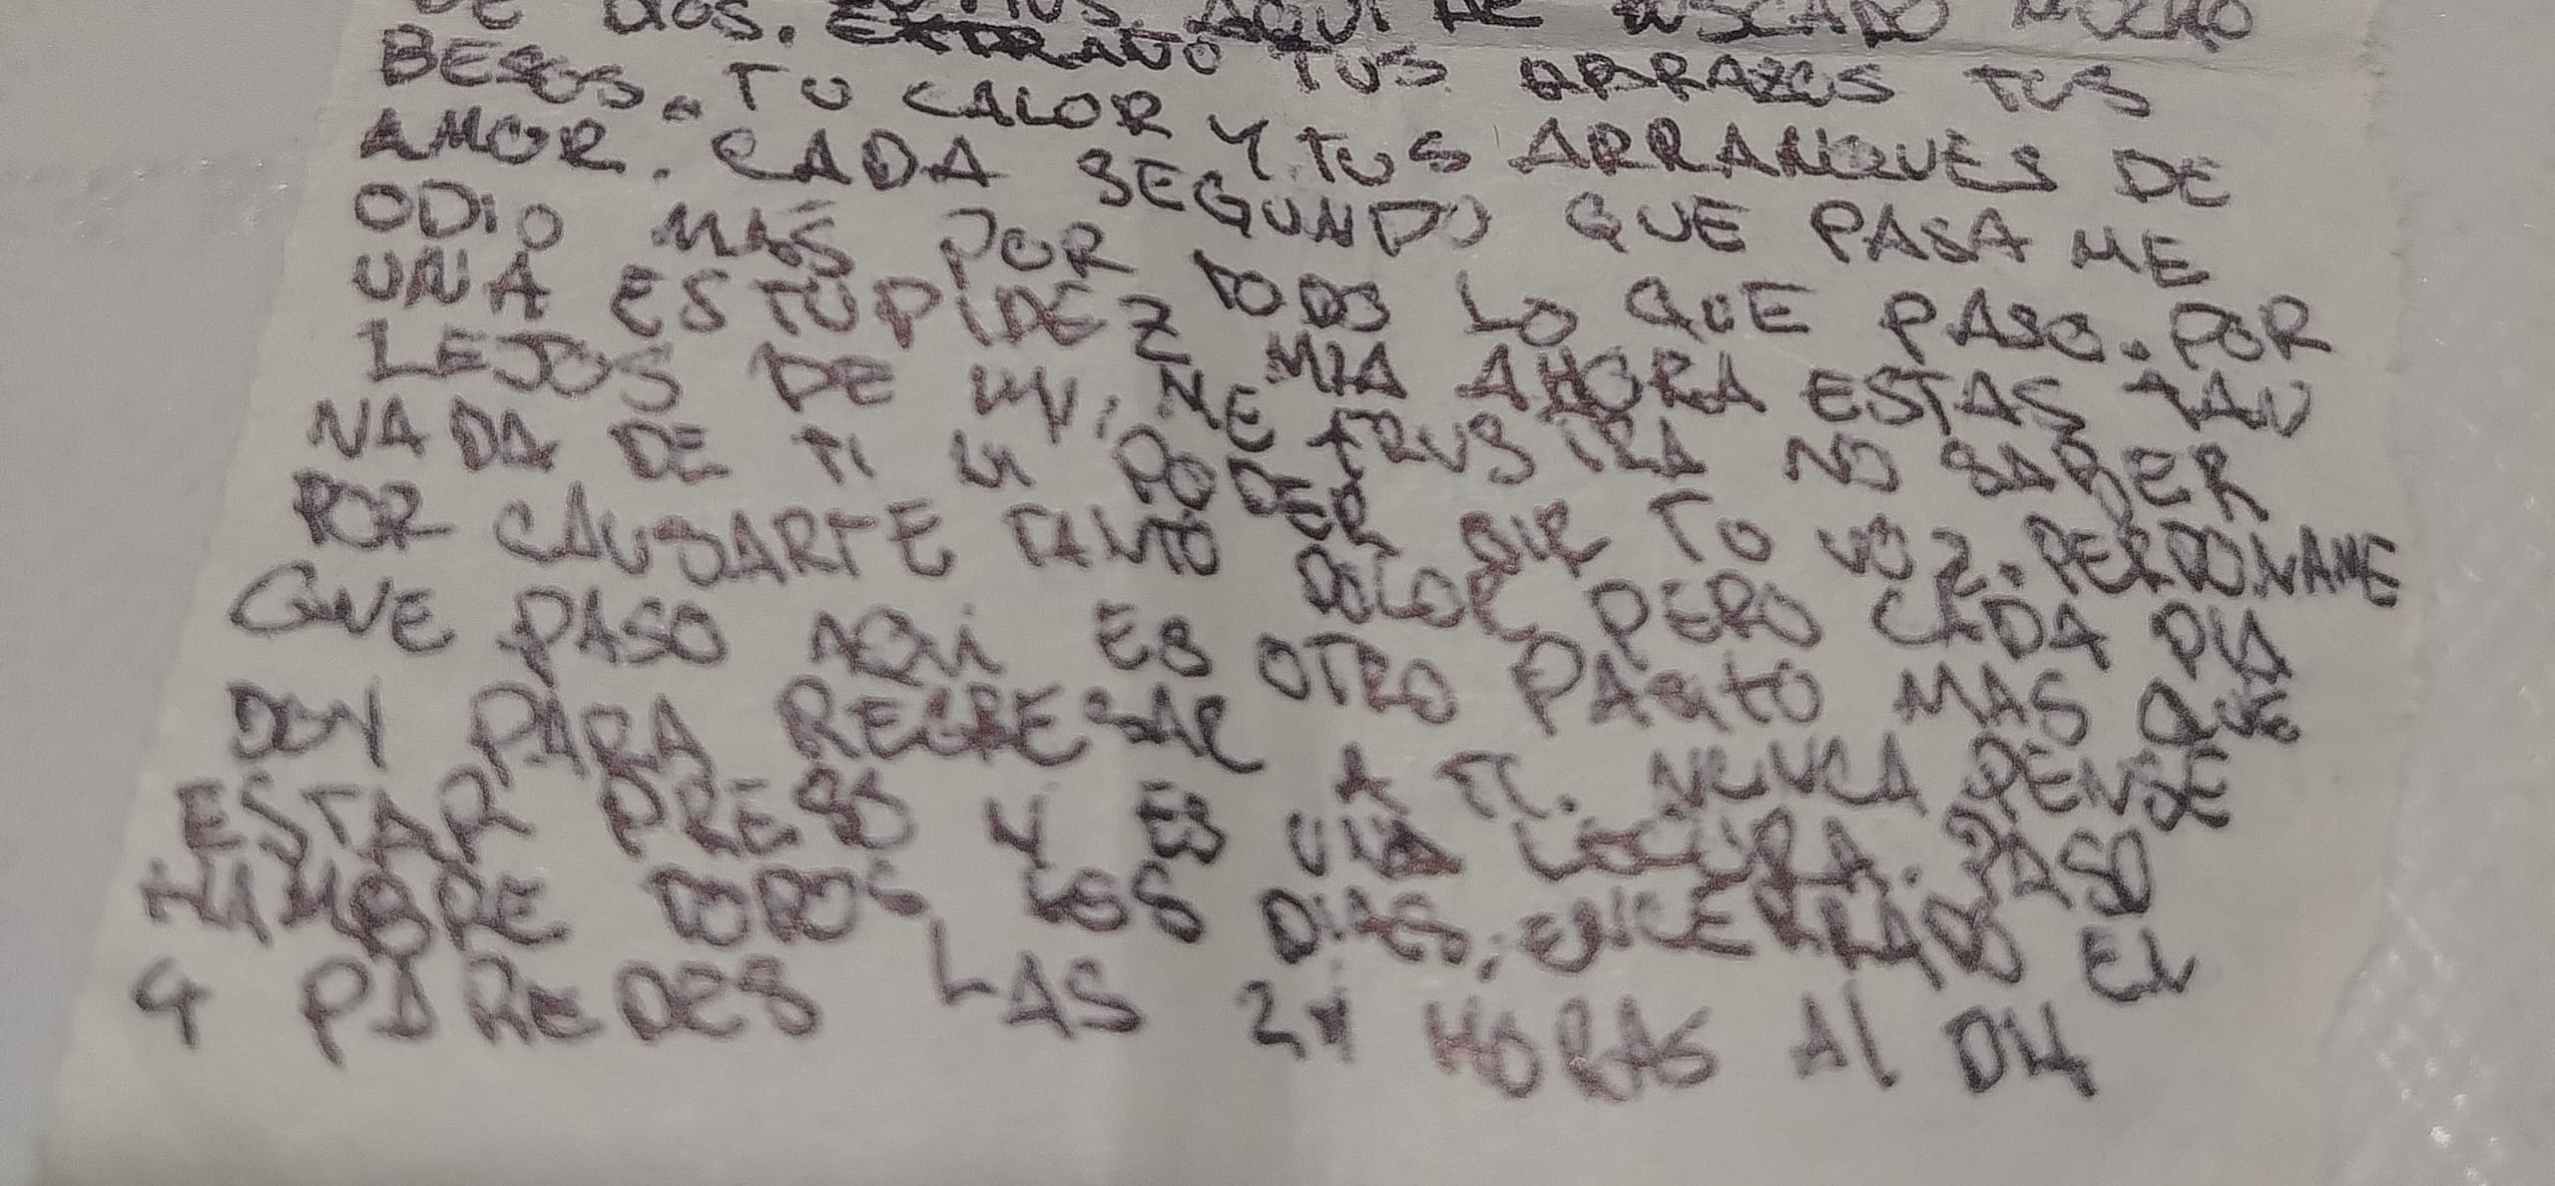 DE DIOS. AQUI HE BUSCADO MUCHO
EXTRAÑO TUS ABRAZOS TUS
BESOS. TU CALOR Y TUS ARRANQUES DE
AMOR. CADA SEGUNDO QUE PASA ME
ODIO MAS POR TODO LO QUE PASO. POR
UNA ESTUPIDEZ MIA AHORA ESTAS TAN
LEJOS DE MI, ME FRUSTRA NO SABER
NADA DE TI NI PODER OIR TU VOZ. PERDONAME
POR CAUSARTE TANTO DOLOR PERO CADA DIA
QUE PASO AQUI ES OTRO PASITO MAS QUE
DOY PARA REGRESAR A TI. NUNCA PENSE
ESTAR PRESO Y ES UNA LOCURA. PASO
HAMBRE TODOS LOS DIAS, ENCERRADO EN
4 PAREDES LAS 24 HORAS Al DIA